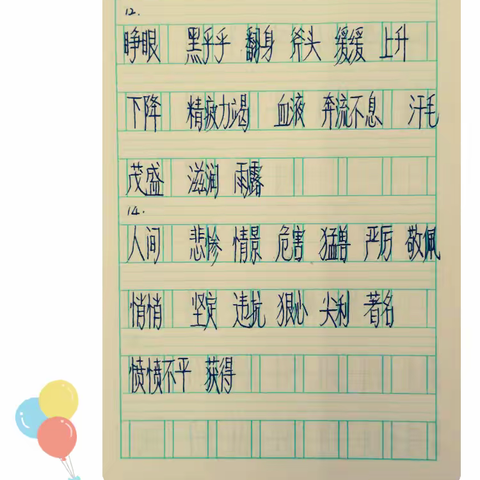 12.
睁眼 黑乎乎 翻身 斧头 缓缓 上升
下降 精疲力竭 血液 奔流不息 汗毛
茂盛 滋润 雨露
14.
人间 悲惨 情景 危害 猛兽 严厉 敬佩
悄悄 坚定 违抗 狠心 尖利 著名
愤愤不平 获得